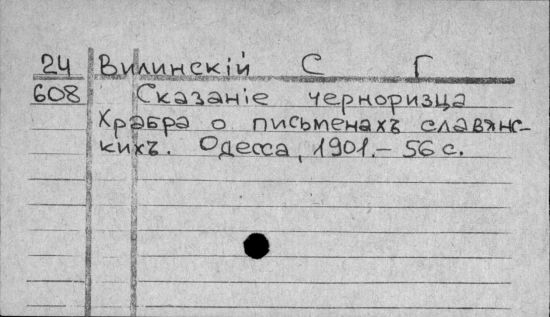 24 Вилинскій С Г
608 Сказаніе черноризца
Храбра о письменахъ славянс-
кихъ. Одесса, 1901.– 56 с.